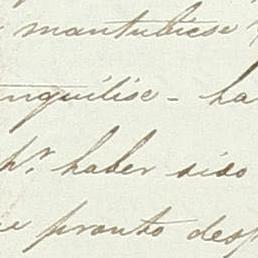 mantubiese
tranquilise - ha
pr. haber sido
pronto desp